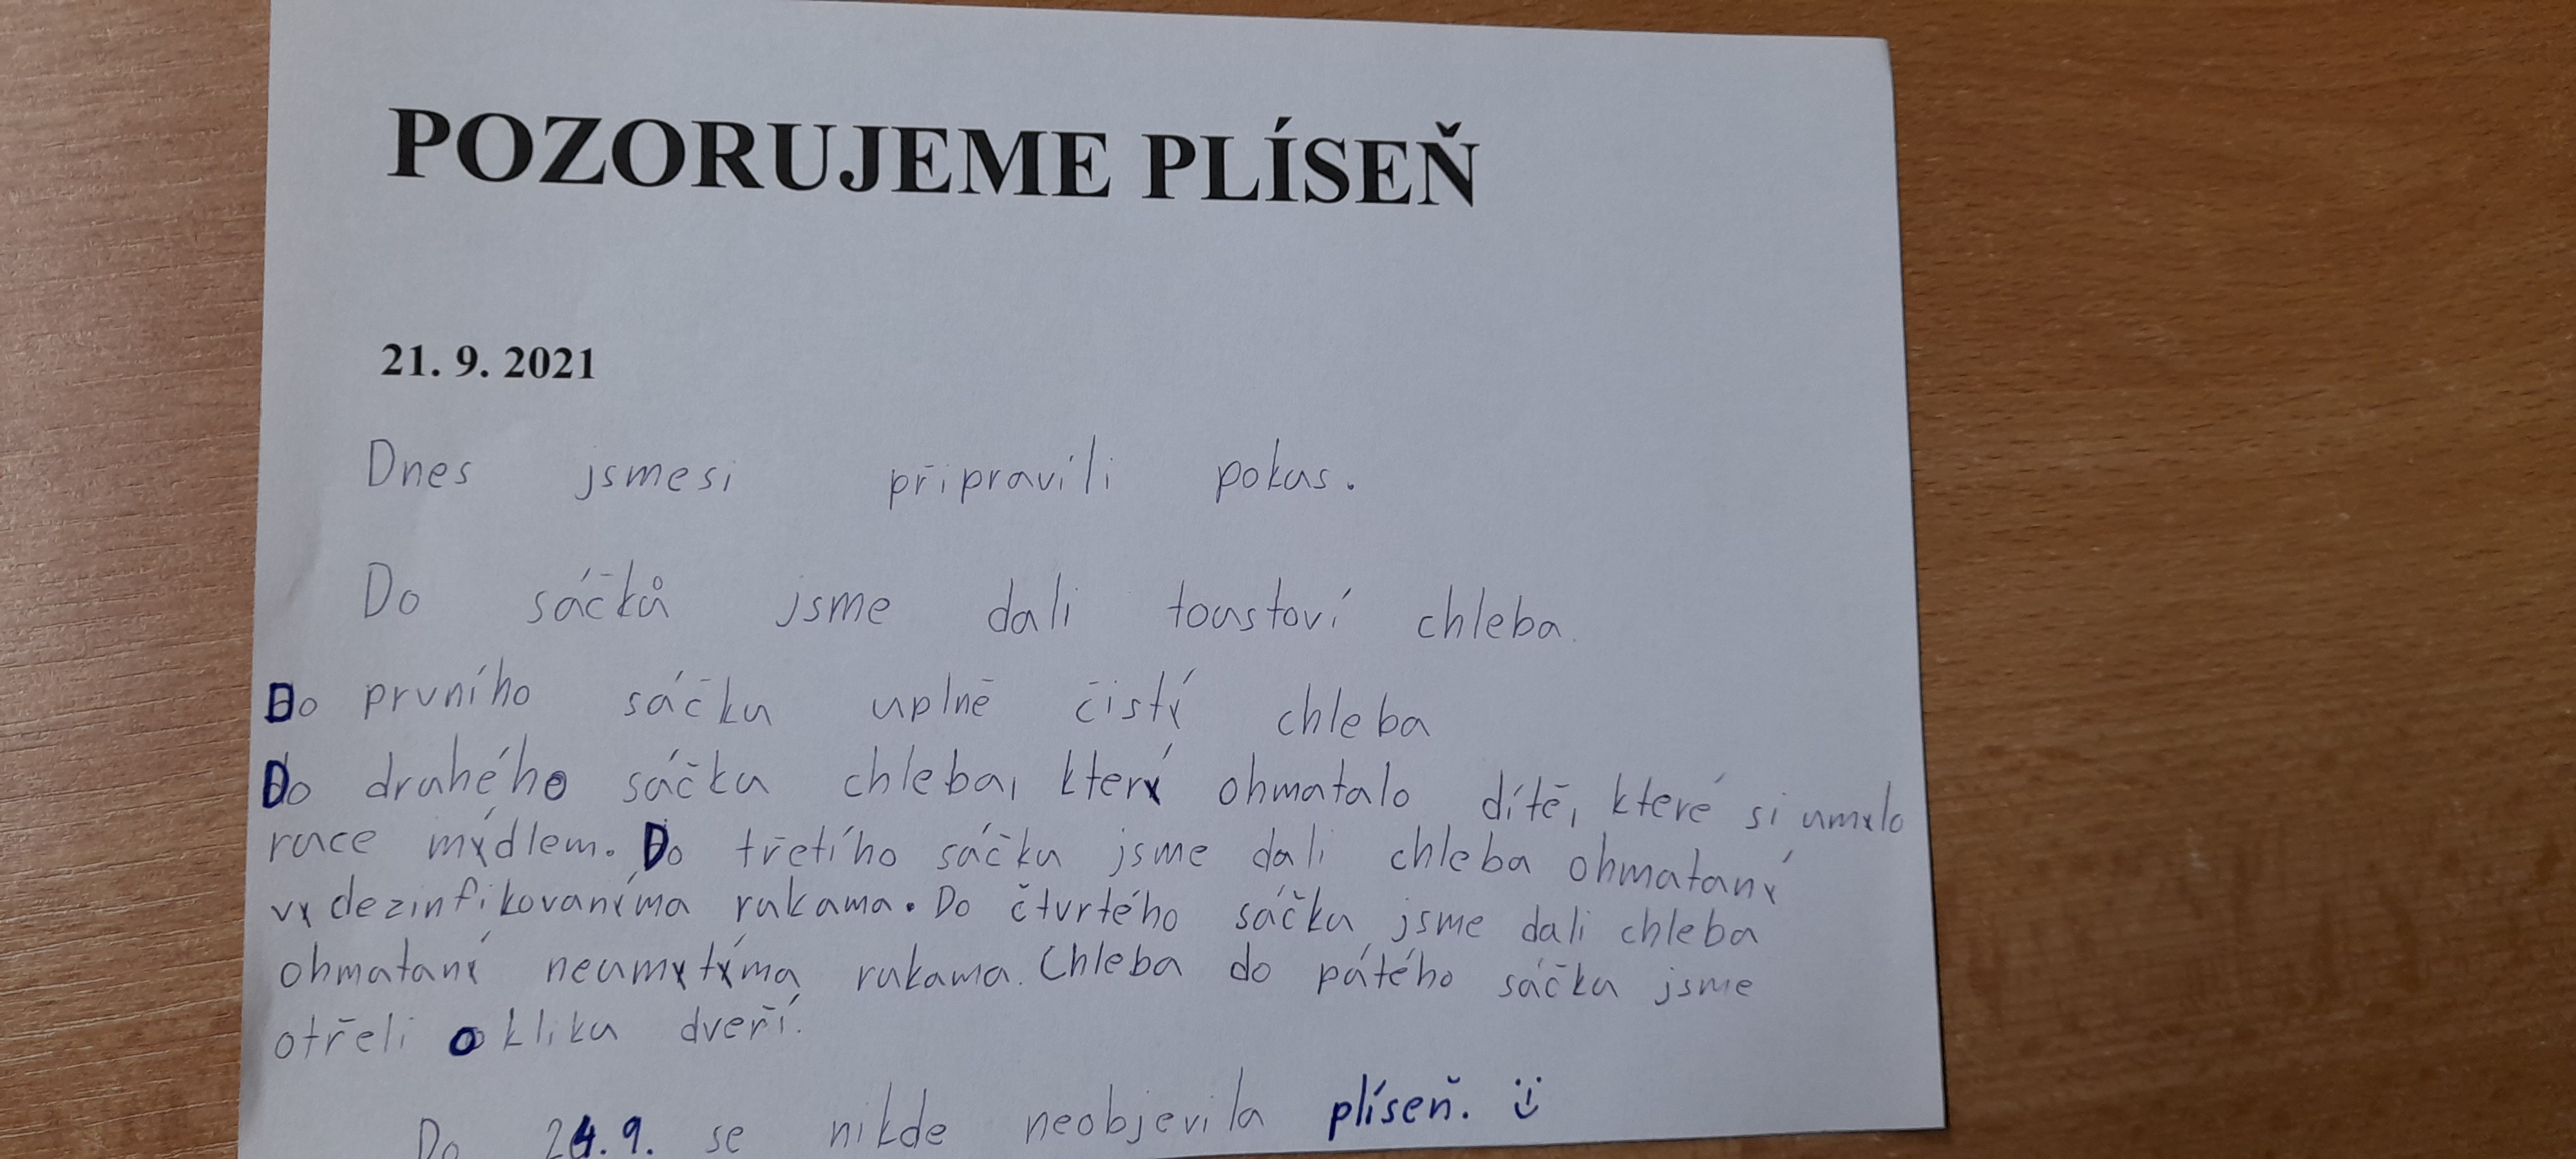 POZORUJEME PLÍSEŇ
21. 9. 2021
Dnes jsmesi připravili pokus.
Do sáčků jsme dali toustoví chleba.
Do prvního sáčku uplně čistý chleba
Do druhého sáčku chleba, který ohmatalo dítě, které si umylo
ruce mýdlem. Do třetího sáčku jsme dali chleba ohmataný
vydezinfikovanýma rukama. Do čtvrtého sáčku jsme dali chleba
ohmataný neumytýma rukama. Chleba do pátého sáčku jsme
otřeli o kliku dveří.
Do 24.9. se nikde neobjevila plíseň. :)